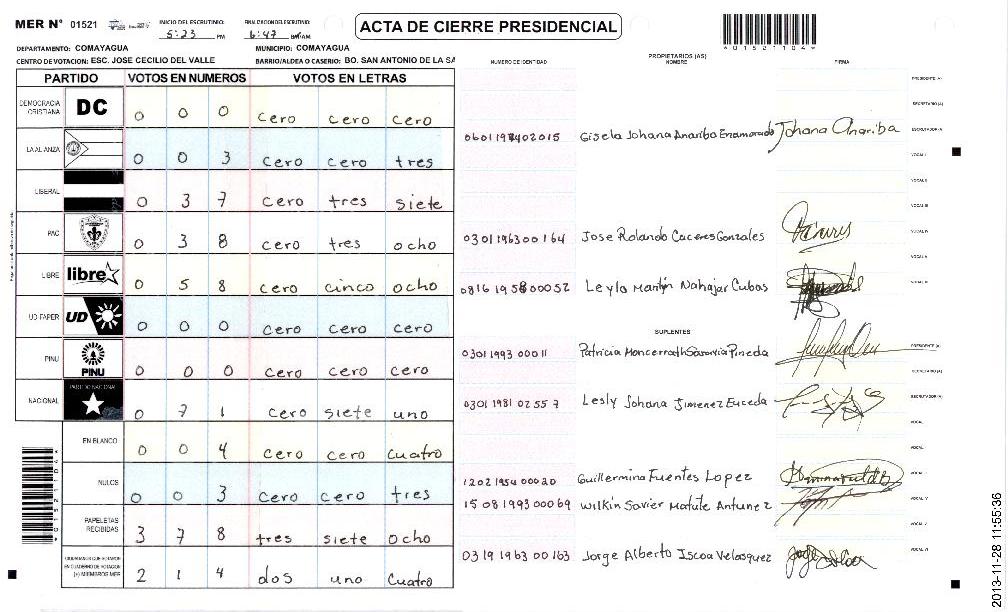 MER N° 01521
INICIO DEL ESCRUTINIO: 5:23 PM
FINALIZACION DEL ESCRUTINIO: 6:47
ACTA DE CIERRE PRESIDENCIAL
01521104
DEPARTAMENTO: COMAYAGUA
MUNICIPIO: COMAYAGUA
CENTRO DE VOTACION: ESC. JOSE CECILIO DEL VALLE
BARRIO/ALDEA O CASERIO: BO. SAN ANTONIO DE LA SA
PARTIDO VOTOS EN NUMEROS VOTOS EN LETRAS
DEMOCRACIA CRISTIANA DC 0 0 0 cero cero cero
LA ALIANZA 0 0 3 cero cero tres
LIBERAL 0 3 7 cero tres siete
PAC 0 3 8 cero tres ocho
LIBRE libre 0 5 8 cero cinco ocho
UD FAPER UD 0 0 0 cero cero cero
PINU PINU 0 0 0 cero cero cero
NACIONAL PARTIDO NACIONAL 0 7 1 cero siete uno
EN BLANCO 0 0 4 cero cero cuatro
NULOS 0 0 3 cero cero tres
PAPELETAS RECIBIDAS 3 7 8 tres siete ocho
CIUDADANOS QUE VOTARON EN CUADERNO DE VOTACION (+) MIEMBROS MER 2 1 4 dos uno cuatro
NUMERO DE IDENTIDAD
PROPIETARIOS (AS)
NOMBRE
FIRMA
PRESIDENTE (A)
SECRETARIO (A)
Gisela Johana Anariba Enamorado Johana Anariba ESCRUTADOR (A)
VOCAL I
VOCAL II
VOCAL III
0301 1963 00164 Jose Rolando Caceres Gonzales VOCAL IV
VOCAL V
0816 1958 00052 Leyla Marilin Nahajar Cubas
SUPLENTES
0301 1993 00011 Patricia Moncerrath Saravia Pineda PRESIDENTE (A)
SECRETARIO (A)
0301 1981 02557 Lesly Johana Jimenez Euceda ESCRUTADOR (A)
VOCAL
VOCAL
1202 1954 00020 Guillermina Fuentes Lopez VOCAL
15 08 1993 00069 Wilkin Savier Matute Antunez
VOCAL V
0319 1963 00163 Jorge Alberto Iscoa Velasquez VOCAL VI
2013-11-28 11:55:36